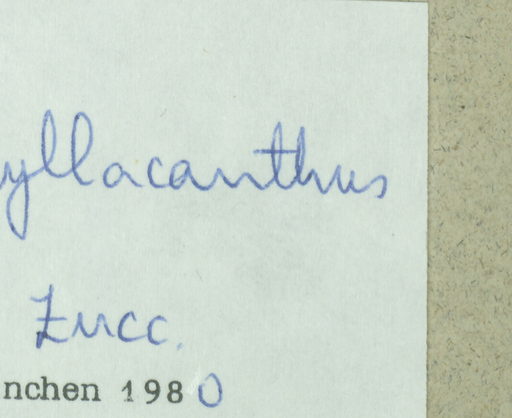 yllacanthus
Zucc.
nchen 1980